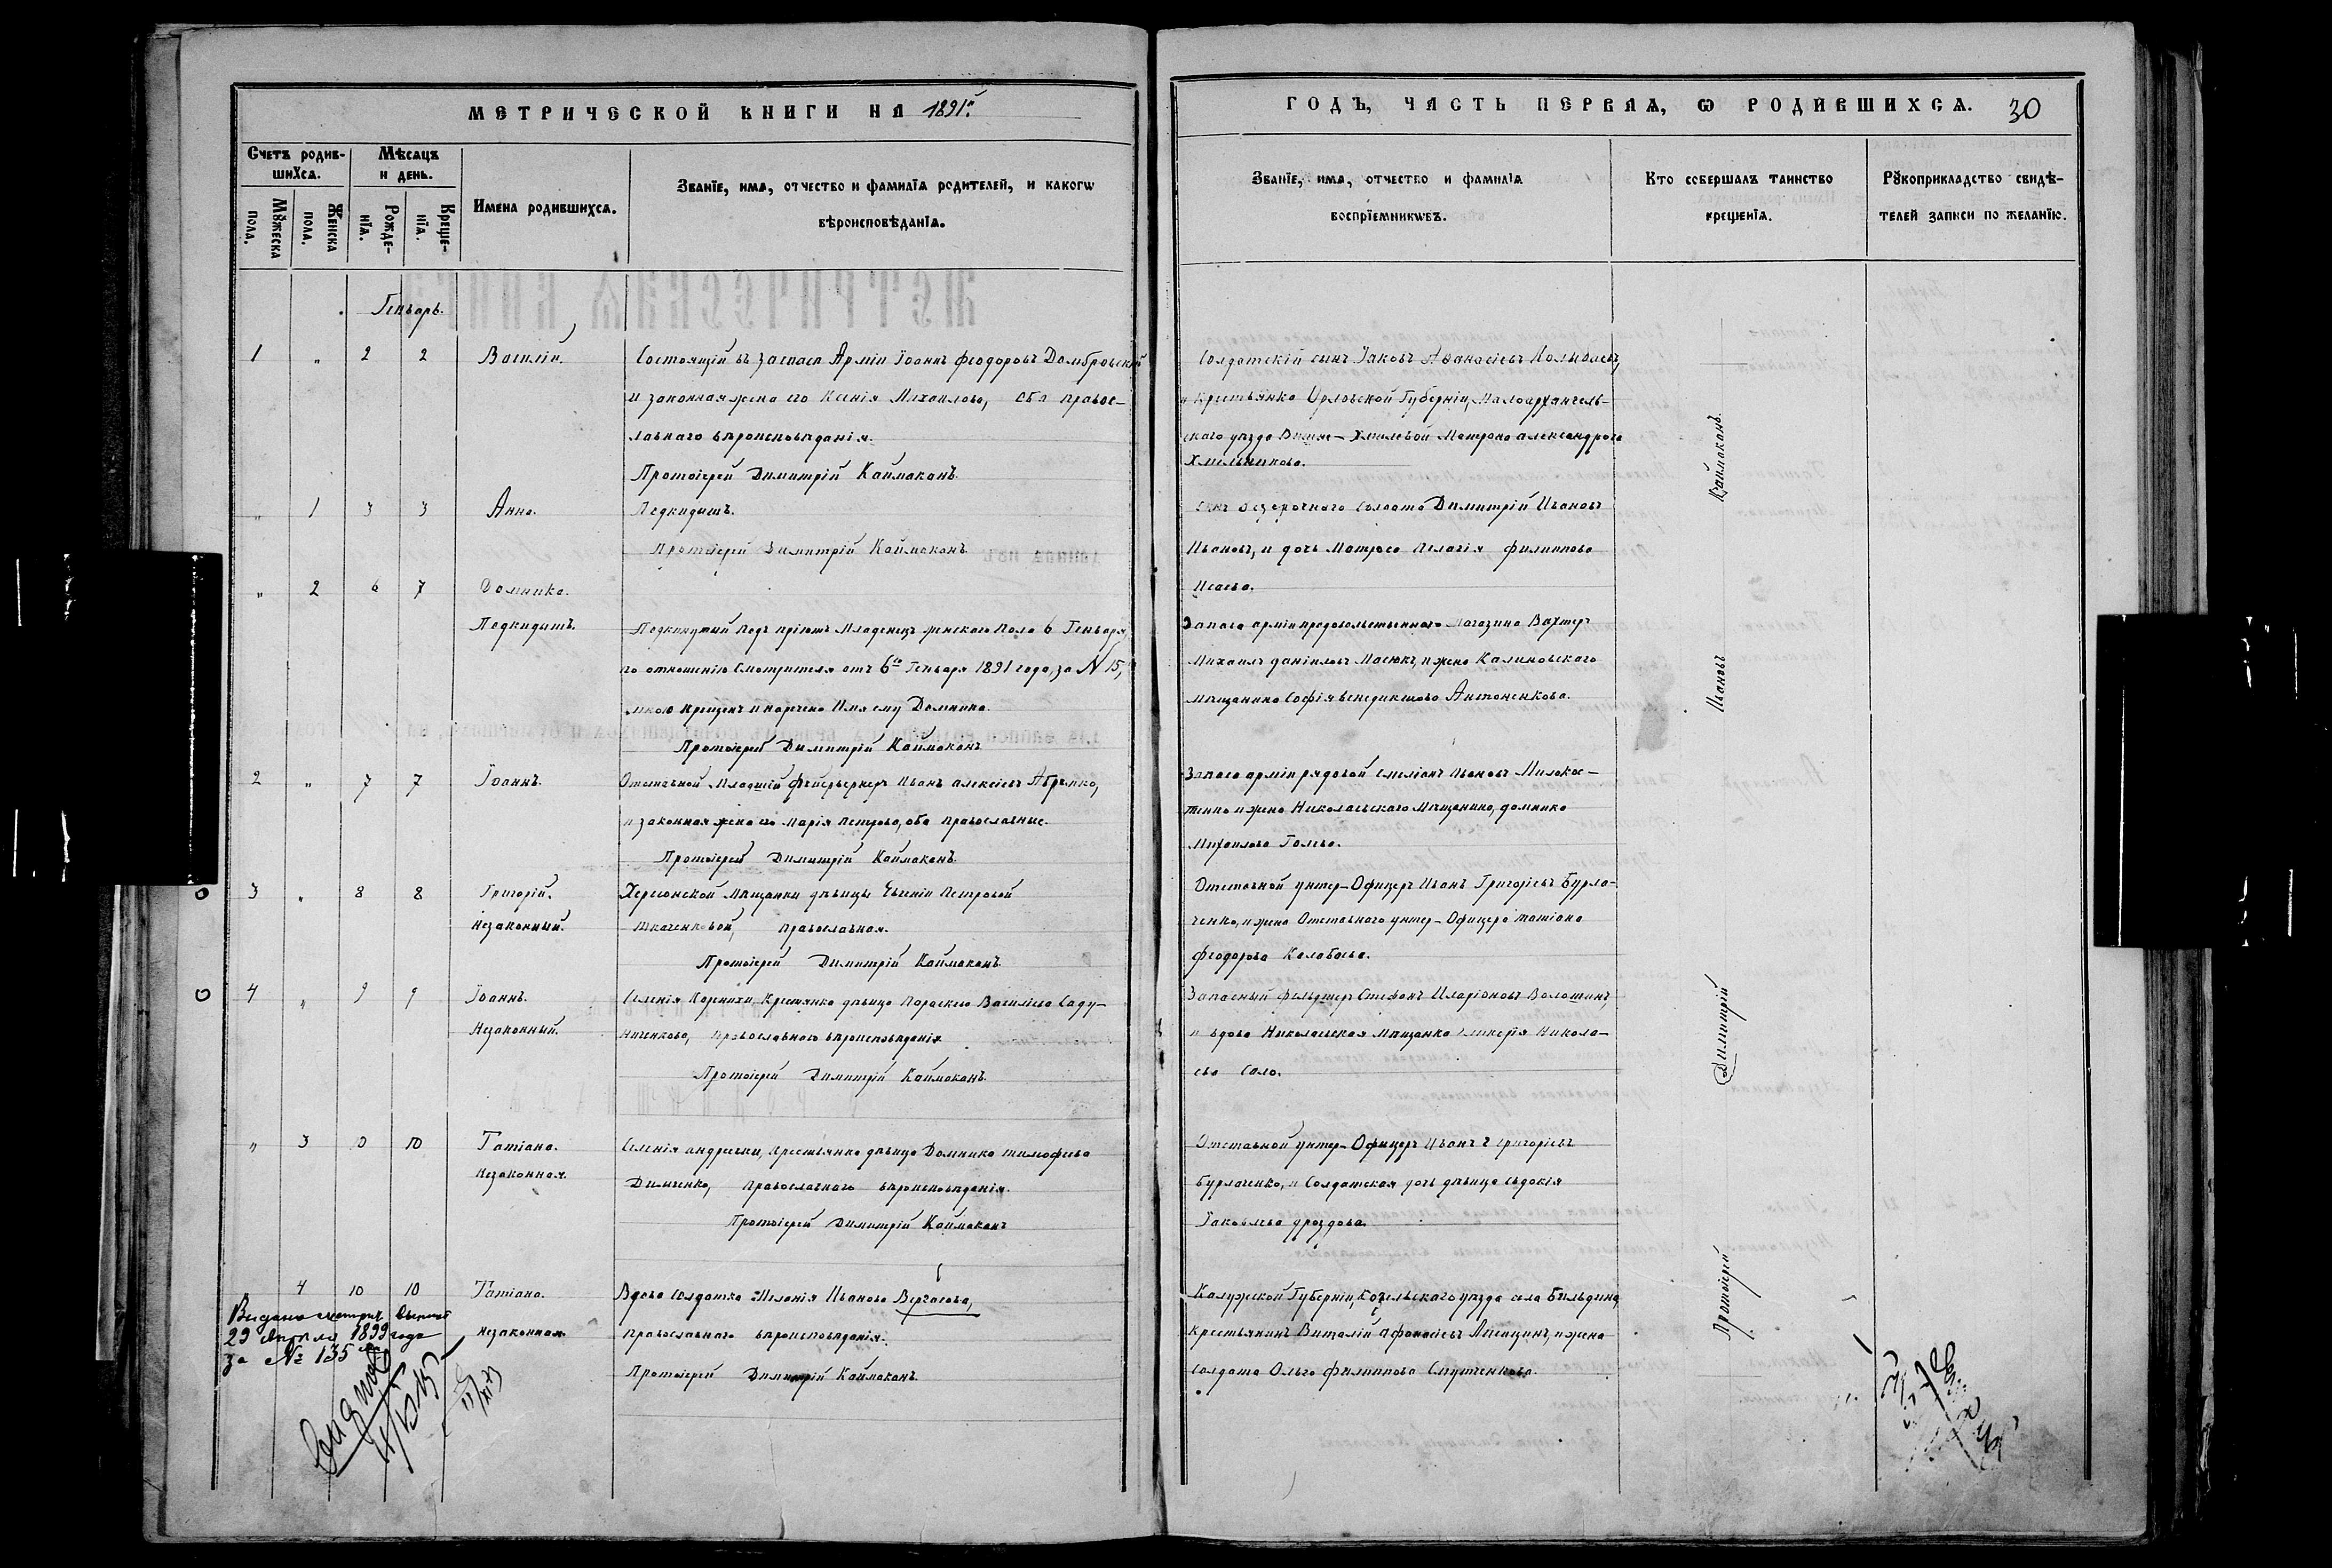 МЕТРИЧЕСКОЙ КНИГИ НА 1891й
Счетъ родив-
шихся.
Мѣсяцъ
и день.
Мужеска
пола.
Женска
пола.
Рожде-
нія.
Креще-
нія.
Имена родившихся.
Званіе, имя, отчество и фамилія родителей, и какогѡ
вѣроисповѣданія.
Генварь.
1 " 2 2 Василій. Состоящій въ запасѣ Арміи Іоаннъ Феодоровъ Домбровскій
и законная жена его Ксенія Михаилова, оба правос-
лавнаго вѣроисповѣданія.
Протоіерей Димитрій Каймаканъ.
" 1 3 3 Анна. Подкидышъ.
Протоіерей Димитрій Каймаканъ
" 2 6 7 Домника.
Подкидышъ. Подкинутый подъ пріютъ Младенецъ женскаго пола 6 Генваря,
по отношенію Смотрителя отъ 6го Генваря 1891 года, за N 15,
мною крещенъ и наречено Имя ему Домника.
Протоіерей Димитрій Каймаканъ
2 " 7 7 Іоаннъ. Отставной Младшій Фейерверкеръ Иванъ Алексіевъ Абрамко,
и законная жена его Марія Петрова, оба православные.
Протоіерей Димитрій Каймаканъ.
3 " 8 8 Григорій. Херсонской Мѣщанки дѣвицы Евгеніи Петровой
незаконный. Ткаченковой, православная.
Протоіерей Димитрій Каймаканъ
4 " 9 9 Іоаннъ. Селенія Коренихи, Крестянка дѣвица Параскева Василіева Саду-
Незаконный. ниченкова, православнаго вѣроисповѣданія
Протоіерей Димитрій Каймаканъ.
" 3 10 10 Татіана. Селенія Андреевки, Крестьянка дѣвица Домника Тимофіева
Незаконная. Димченко, православнаго вѣроисповѣданія.
Протоіерей Димитрій Каймаканъ
4 10 10 Татіана. Вдова солдатка Меланія Иванова Вергасова,
незаконная православнаго вѣроисповѣданія.
Протоіерей Димитрій Каймаканъ.
Выдана метрич.
29 Апрѣля 1899 года
за № 135
ГОДЪ, ЧАСТЬ ПЕРВАЯ, Ѡ РОДИВШИХСЯ. 30
Званіе, имя, отчество и фамилія
воспріемникѡвъ.
Кто совершалъ таинство
крещенія.
Рукоприкладство свидѣ-
телей записи по желанію.
Солдатскій сынъ Іаковъ Афанасіевъ
и Крестьянка Орловской Губерніи, Малоархангель-
скаго уѣзда Матрона Александрова
Хмельникова.
Сынъ безсрочнаго солдата Димитрій Ивановъ
Ивановъ, и дочь Матроса Пелагія Филиппова
Исаева.
Запаса арміи продовольственнаго магазина Вахтеръ
Михаилъ Даніиловъ Масюкъ, и жена Калиновскаго
мѣщанина Софія Венедиктова Антоненкова.
Запаса арміи рядовой Емеліанъ Ивановъ Милокос-
тенко и жена Николаевскаго Мѣщанина, Домника
Михаилова Голева.
Отставной унтер-Офицеръ Иванъ Григоріевъ Бурла-
ченко, и жена Отставнаго унтер-Офицера Татіана
Феодорова Колабаева.
Запасный фельдшеръ Стефанъ Иларіоновъ Волошинъ,
и вдова Николаевская Мѣщанка Гликерія Никола-
ева Сало.
Отставной унтер-Офицеръ Иванъ Григоріевъ
Бурлаченко, и Солдатская дочь дѣвица Евдокія
Іаковлева Дроздова.
Калужской Губерніи, Козельскаго уѣзда села
крестьянинъ Виталій Афанасіевъ и жена
солдата Ольга Филиппова
Протоіерей Димитрій Ивановъ Каймаканъ.